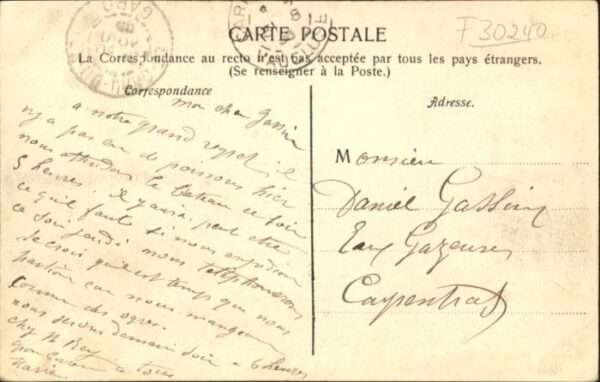 CARTE POSTALE
F30240
La Correspondance au recto n'est pas acceptée par tous les pays étrangers.
(Se renseigner à la Poste.)
Correspondance
mon cher Gassin
a notre grand regret il
n'y a pas eu de poissons hier
nous attendons le bateau ce soir
5 heures il y aura peut etre
ce qu'il faut si nous expedions
ce soir jeudi nous telephonerons
Je crois qu'il est temps que nous
partions car nous mangeons
comme des ogres
nous serons demain soir a 6 heures
chez
a tous
Marie
Adresse.
Monsieur
Daniel Gassin
Eaux Gazeuses
Carpentras
VAUCLUSE
GARD